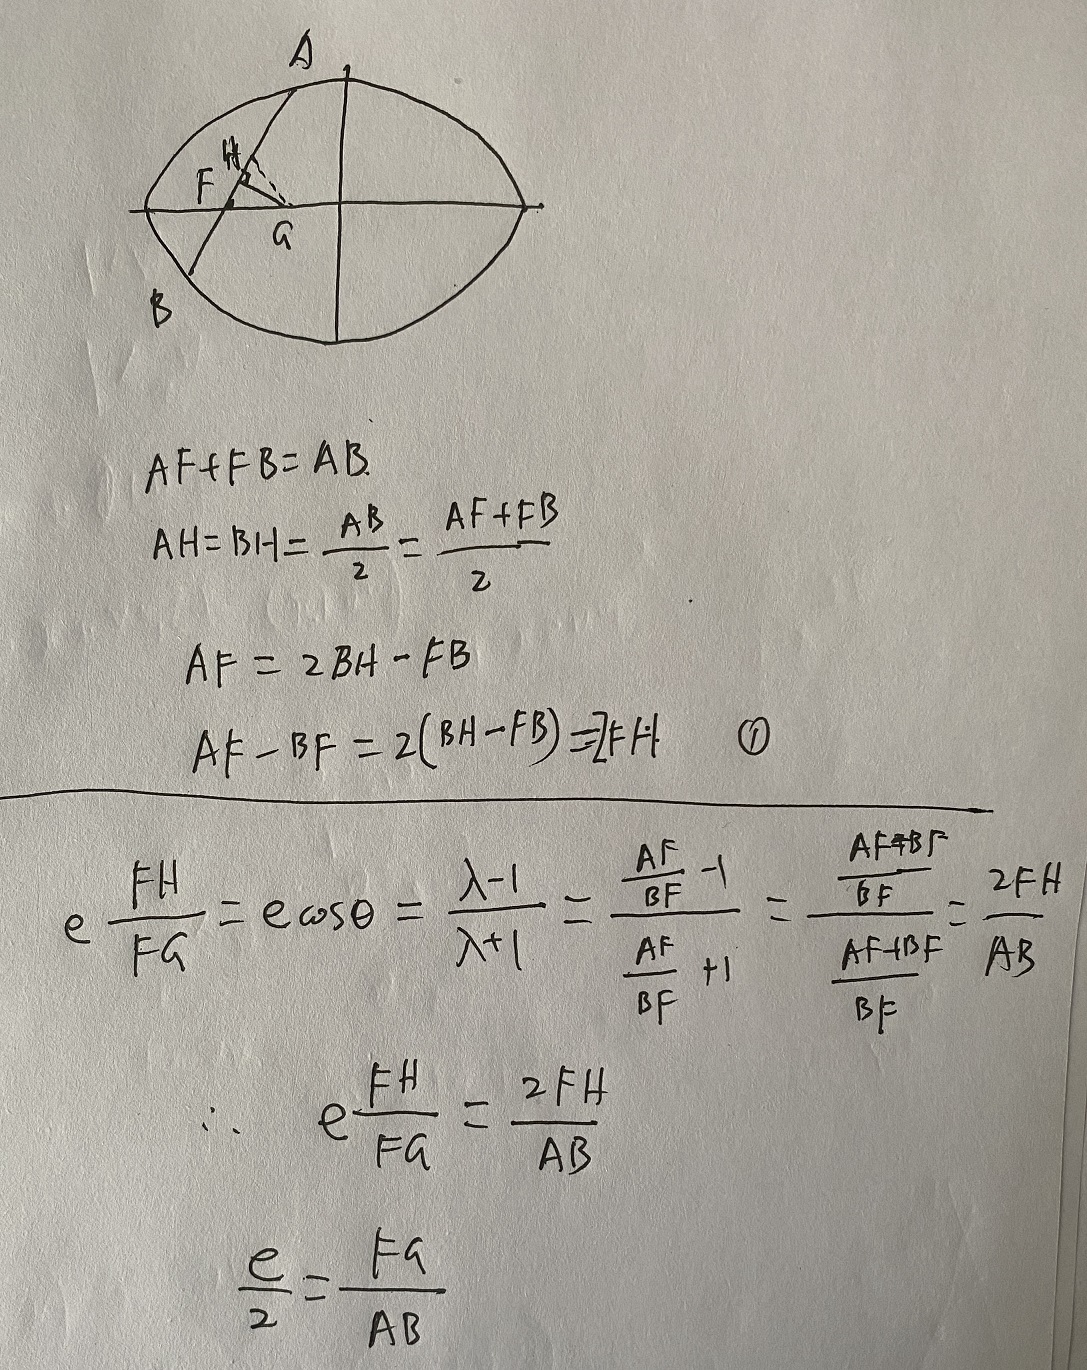 A
H
F
G
B
AF+FB=AB.
AH=BH=\frac{AB}{2}=\frac{AF+FB}{2}
AF=2BH-FB
AF-BF=2(BH-FB)=2FH ①
e\frac{FH}{FG}=e cosθ=\frac{λ-1}{λ+1}=\frac{\frac{AF}{BF}-1}{\frac{AF}{BF}+1}=\frac{\frac{AF-BF}{BF}}{\frac{AF+BF}{BF}}=\frac{2FH}{AB}
∴ e\frac{FH}{FG}=\frac{2FH}{AB}
\frac{e}{2}=\frac{FG}{AB}